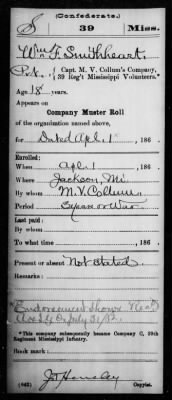 (Confederate.)
S 39 Miss.
Wm F. Smithheart
Pvt., Capt. M. V. Collum's Company,
39 Reg't Mississippi Volunteers.*
Age 18 years.
Appears on
Company Muster Roll
of the organization named above,
for Dated Apl. 1, 186 .
Enrolled:
When Apl. 1, 186 .
Where Jackson, Mi
By whom M. V. Collum
Period 3 years or War
Last paid:
By whom
To what time , 186 .
Present or absent Not stated.
Remarks:
Endorsement shows
*This company subsequently became Company C, 39th
Regiment Mississippi Infantry.
Book mark:
(642) Copyist.